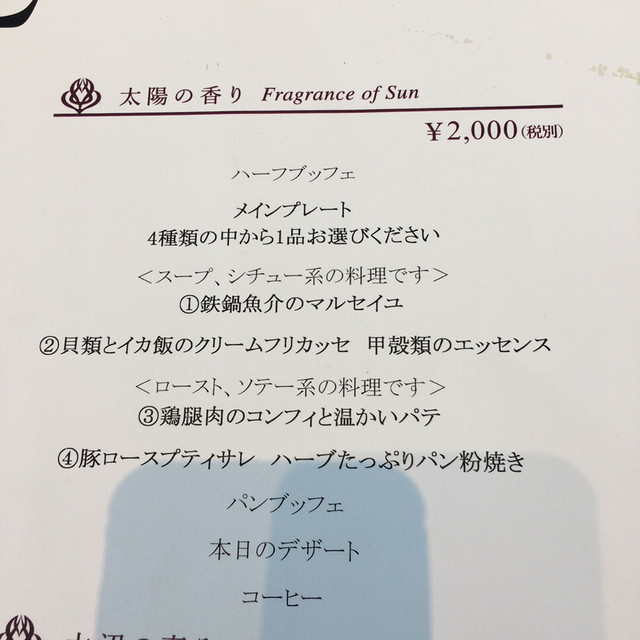 太陽の香り Fragrance of Sun
¥2,000(税別)
ハーフブッフェ
メインプレート
4種類の中から1品お選びください
＜スープ、シチュー系の料理です＞
①鉄鍋魚介のマルセイユ
②貝類とイカ飯のクリームフリカッセ 甲殻類のエッセンス
＜ロースト、ソテー系の料理です＞
③鶏腿肉のコンフィと温かいパテ
④豚ロースプティサレ ハーブたっぷりパン粉焼き
パンブッフェ
本日のデザート
コーヒー